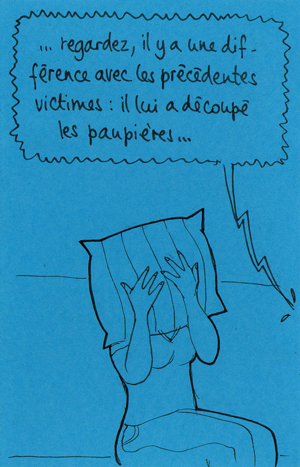 ... regardez, il y a une dif-
férence avec les précédentes
victimes : il lui a découpé
les paupières...